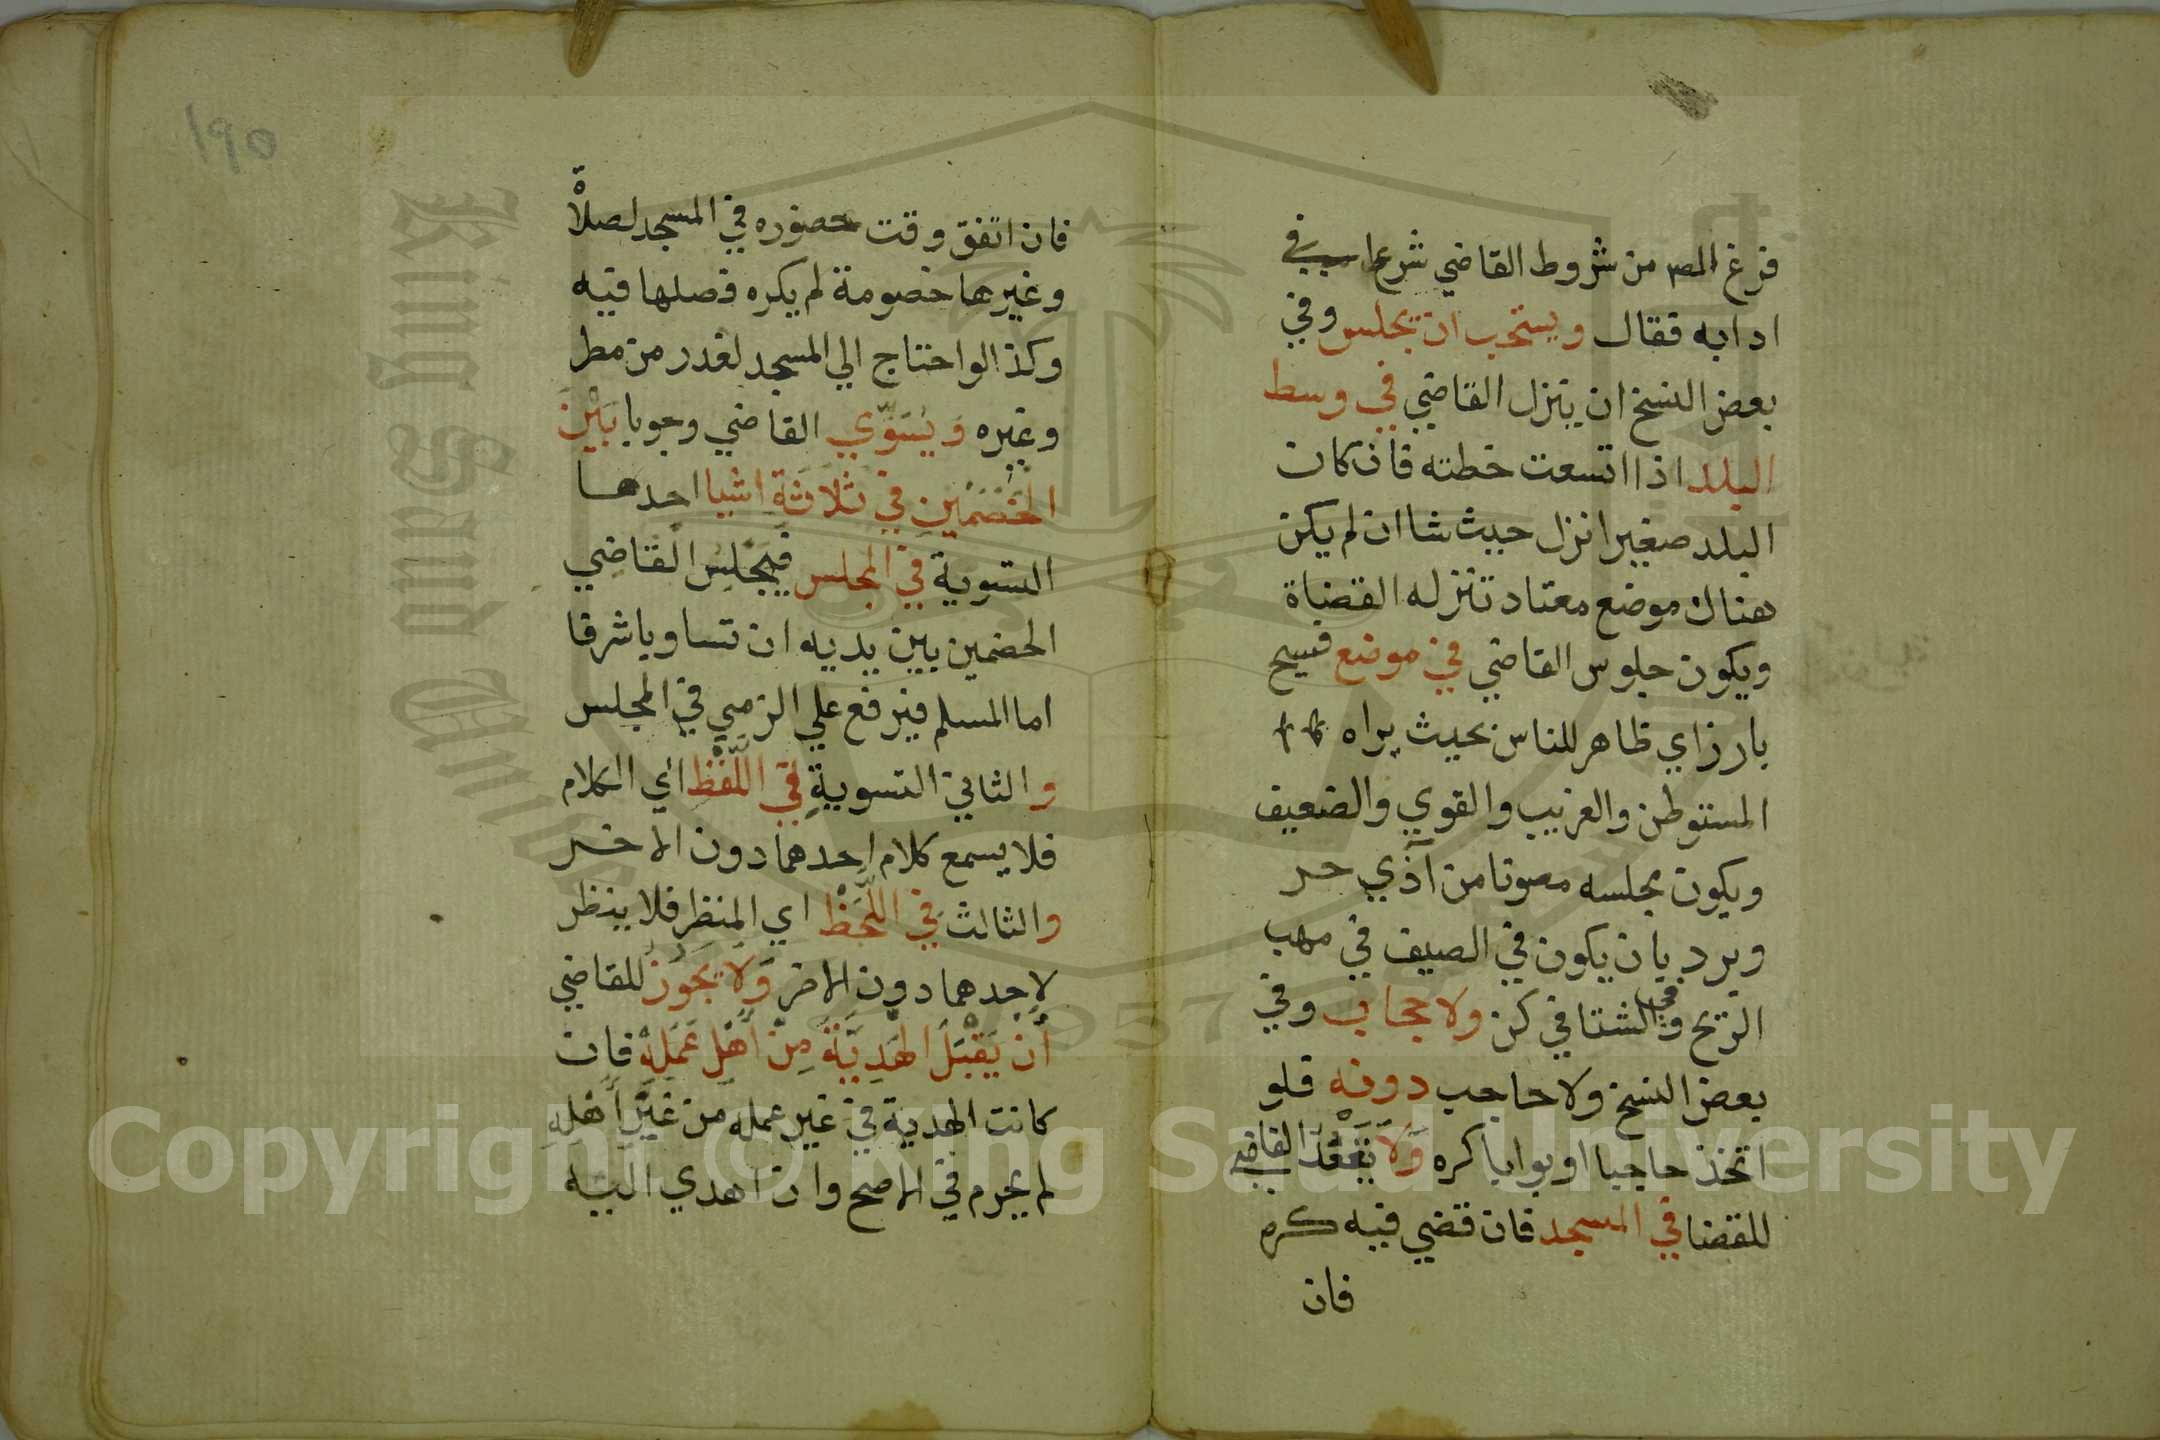 فرغ المص من شروط القاضي شرع في
ادابه فقال ويستحب ان يجلس وفي
بعض النسخ ان ينزل القاضي في وسط
البلد اذا اتسعت خطته فان كانت
البلد صغيرا نزل حيث شا ان لم يكن
هناك موضع معتاد تنزله القضاة
ويكون جلوس القاضي في موضع فسيح
بارز اي ظاهر للناس بحيث يراه
المستوطن والغريب والقوي والضعيف
ويكون مجلسه مصونا من آذي حر
وبرد بان يكون في الصيف في مهب
الريح وفي الشتا في كن ولا حجاب وفي
بعض النسخ ولا حاجب دونه فلو
اتخذ حاجبا او بوابا كره وَلَا يَقْعُدُ القاضي
للقضا في المسجد فان قضي فيه كره
فان
١٩٥
فان اتفق وقت حضوره في المسجد لصلاة
وغيرها خصومة لم يكره فصلها فيه
وكذا لو احتاج الي المسجد لعذر من مطر
وغيره وَيُسَوِّي القاضي وجوبا بَيْنَ
الْخَصْمَيْنِ فِي ثَلَاثَةِ اشيا احدها
التسوية فِي المجلس فَيُجْلِسُ القاضي
الخصمين بين يديه ان تساويا شرفا
اما المسلم فيرفع علي الذمي في المجلس
والثاني التسوية فِي اللَّفْظِ اي الكلام
فلا يسمع كلام احدهما دون الاخر
والثالث فِي اللَّحْظِ اي النظر فلا ينظر
لاحدهما دون الاخر وَلَا يَجُوزُ للقاضي
أَنْ يَقْبَلَ الْهَدِيَّةَ مِنْ أَهْلِ عَمَلِهْ فان
كانت الهدية في غير عمله من غَيْرِ أَهْلِهِ
لم يحرم في الاصح وان اهدي اليه
Copyright © King Saud University
King Saud University
1957